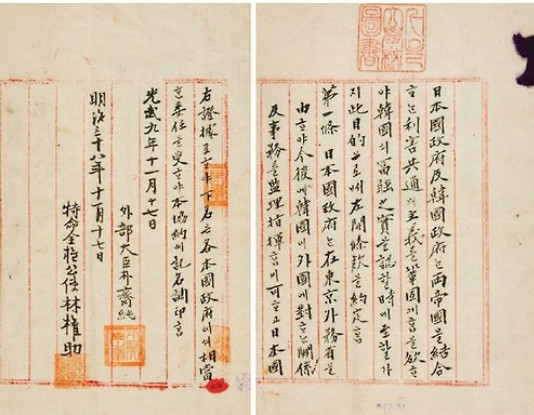 日本國政府及韓國政府ᄂᆞᆫ兩帝國을結合
ᄒᆞᄂᆞᆫ利害共通의主義를鞏固케ᄒᆞᆷ을欲ᄒᆞ
야韓國의富强之實을認ᄒᆞᆯ時에至ᄒᆞᆯ가
지此目的으로ᄡᅥ左開條款을約定ᄒᆞᆷ
第一條 日本國政府ᄂᆞᆫ在東京外務省을
由ᄒᆞ야今後에韓國이外國에對ᄒᆞᄂᆞᆫ關係
及事務를監理指揮ᄒᆞᆷ이可ᄒᆞ고日本國
右證據로ᄒᆞ야下名은各本國政府에셔相當
ᄒᆞᆫ委任을受ᄒᆞ야本協約에記名調印ᄒᆞᆷ
光武九年十一月十七日
外部大臣朴齊純
明治三十八年十一月十七日
特命全權公使林權助